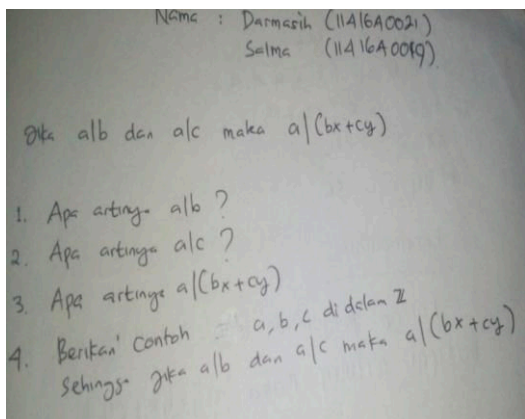 Nama : Darmasih (11416A0021)
Salma (11416A0049)
Jika a|b dan a|c maka a|(bx+cy)
1. Apa artinya a|b ?
2. Apa artinya a|c ?
3. Apa artinya a|(bx+cy)
4. Berikan contoh = a, b, c di dalam ℤ
Sehingga jika a|b dan a|c maka a|(bx+cy)